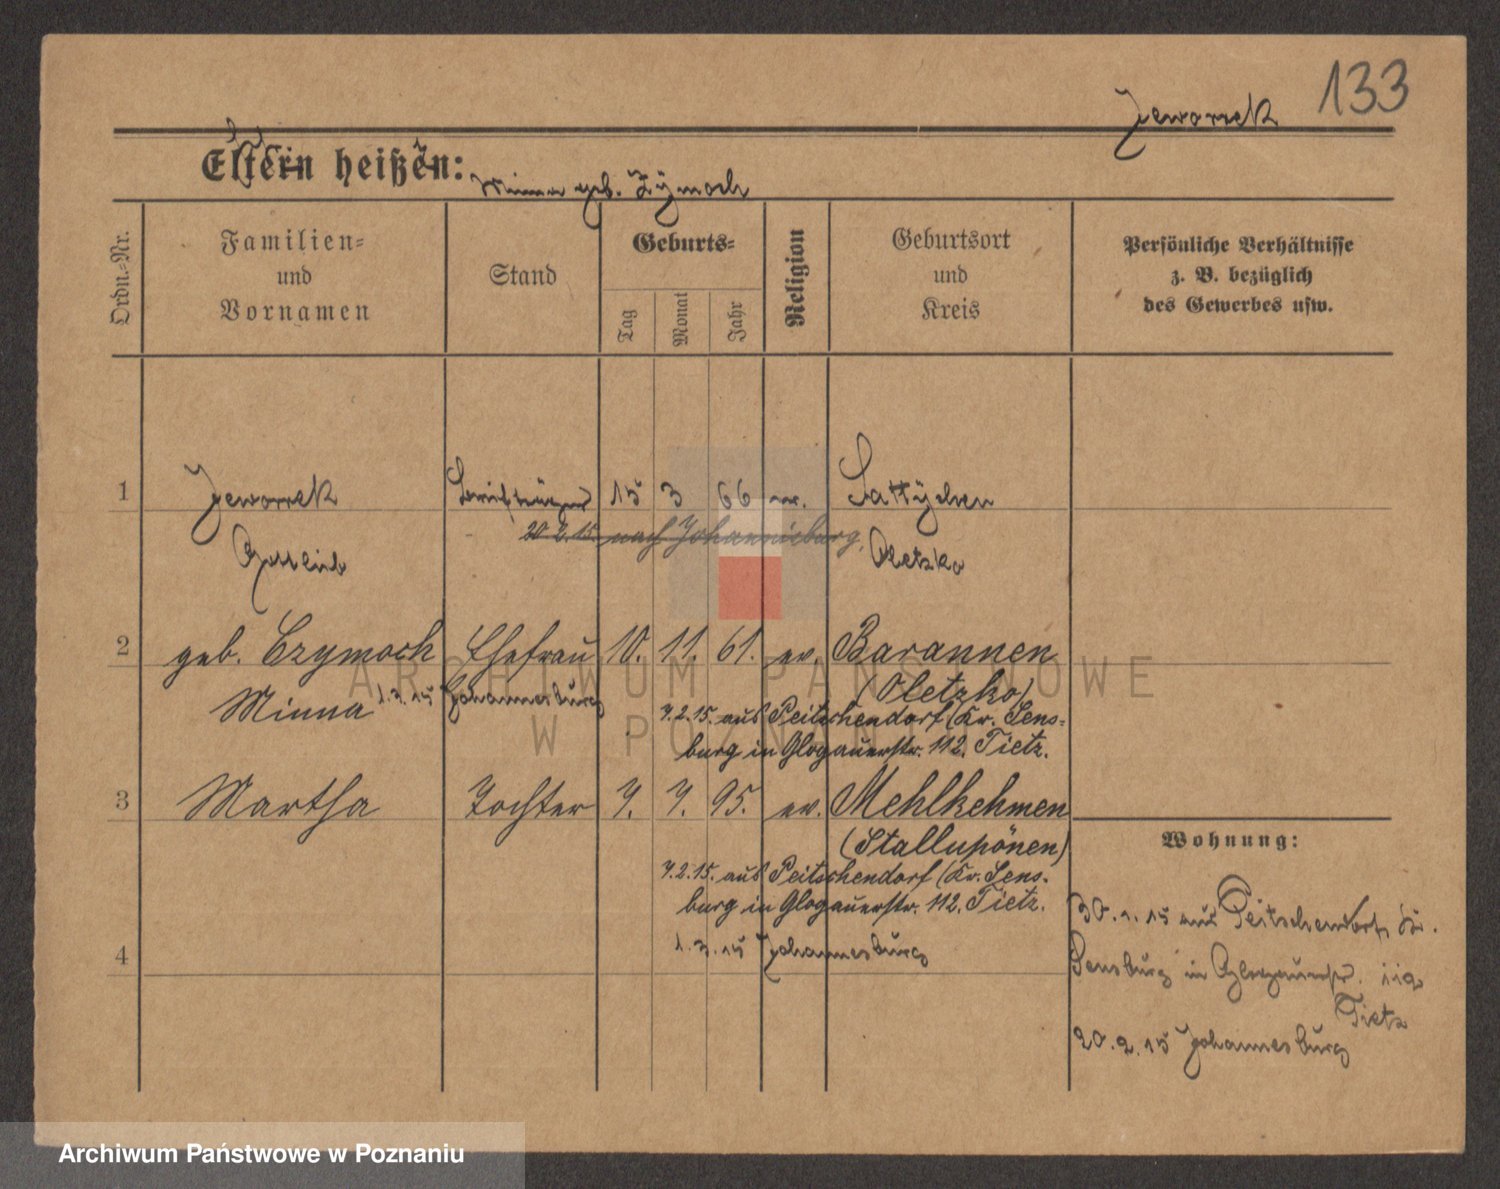 133
Jeworrek
Eltern heißen:
Minna geb. Zymoch
Ordn.-Nr.
Familien-
und
Vornamen
Stand
Geburts-
Tag
Monat
Jahr
Religion
Geburtsort
und
Kreis
Persönliche Verhältnisse
z. B. bezüglich
des Gewerbes usw.
1 Jeworrek 15 3 66 Sattychen
20.2.15. nach Johannisburg.
Gottlieb Oletzko
2 geb. Czymoch Ehefrau 10. 11. 61. ev. Barannen
(Oletzko)
Minna 1.3.15 Johannesburg
7.2.15. aus Peitschendorf (Kr. Sens-
burg in Glogauerstr. 112. Tietz.
3 Martha Tochter 7. 7. 95. ev. Mehlkehmen
(Stallupönen)
7.2.15. aus Peitschendorf (Kr. Sens-
burg in Glogauerstr. 112. Tietz.
4 1.3.15 Johannesburg
Wohnung:
30.1.15 aus Peitschendorf, Kr.
Sensburg in Glogauerstr. 112
Tietz
20.2.15 Johannesburg
ARCHIWUM PAŃSTWOWE
W POZNANIU
Archiwum Państwowe w Poznaniu